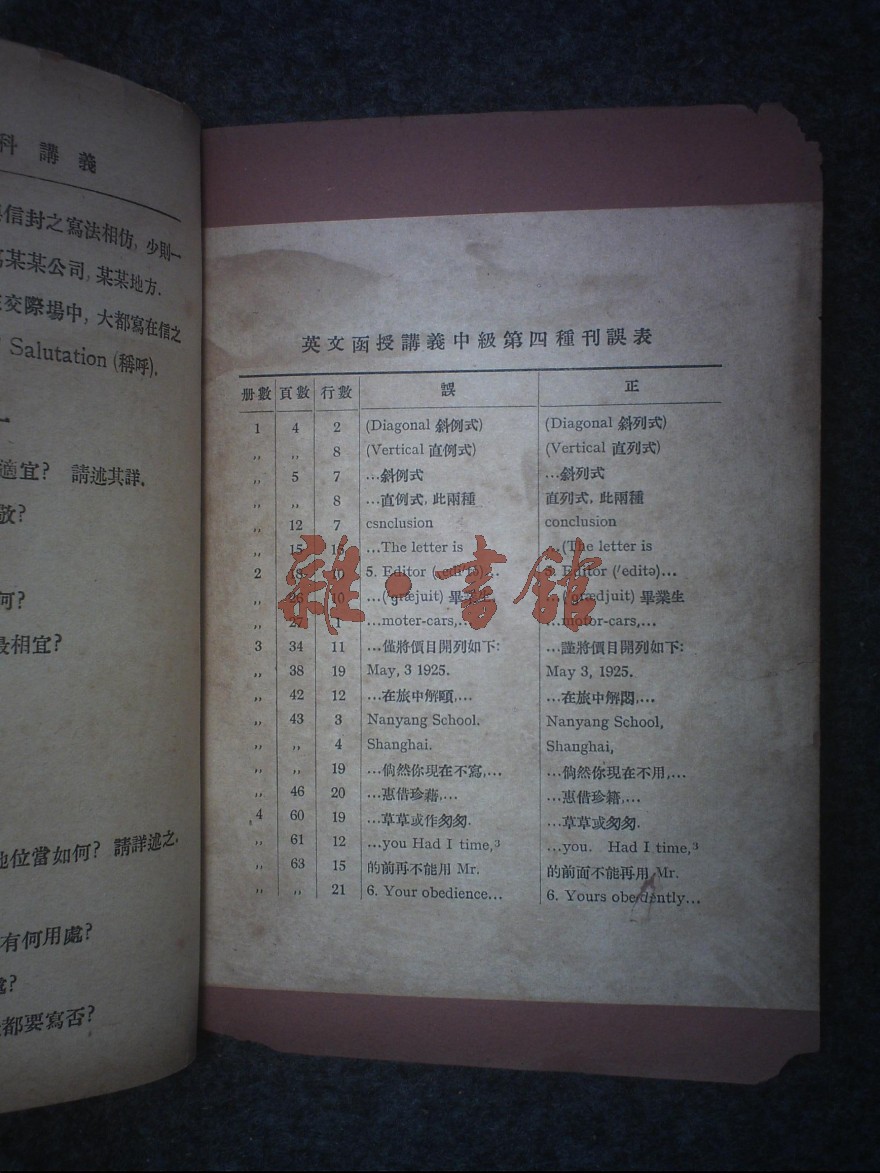 科講義
信封之寫法相仿, 少則一
某某公司, 某某地方.
交際場中, 大都寫在信之
Salutation (稱呼).
適宜? 請述其詳.
敬?
何?
最相宜?
地位當如何? 請詳述之.
有何用處?
處?
都要寫否?
英文函授講義中級第四種刊誤表
册數 頁數 行數 誤 正
1 4 2 (Diagonal 斜例式) (Diagonal 斜列式)
,, ,, 8 (Vertical 直例式) (Vertical 直列式)
,, 5 7 ...斜例式 ...斜列式
,, ,, 8 ...直例式, 此兩種 直列式, 此兩種
,, 12 7 csnclusion conclusion
,, 15 16 ...The letter is ...(The letter is
2 18 10 5. Editor 5. Editor ('editə)...
,, 26 10 ...('græjuit) 畢業生 ...('grædjuit) 畢業生
,, 27 1 ...moter-cars,... ...motor-cars,...
3 34 11 ...僅將價目開列如下: ...謹將價目開列如下:
,, 38 19 May, 3 1925. May 3, 1925.
,, 42 12 ...在旅中解頤,... ...在旅中解悶,...
,, 43 3 Nanyang School. Nanyang School,
,, ,, 4 Shanghai. Shanghai,
,, ,, 19 ...倘然你現在不寫,... ...倘然你現在不用,...
,, 46 20 ...惠借珍藉,... ...惠借珍籍,...
4 60 19 ...草草或作匆匆. ...草草或匆匆.
,, 61 12 ...you Had I time,³ ...you. Had I time,³
,, 63 15 的前再不能用 Mr. 的前面不能再用 Mr.
,, ,, 21 6. Your obedience... 6. Yours obediently...
雜·書館